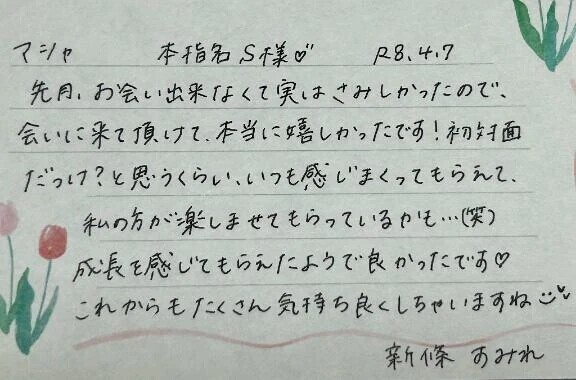 マシャ 本指名 S様♡ R8.4.7
先月、お会い出来なくて実はさみしかったので、
会いに来て頂けて、本当に嬉しかったです！初対面
だっけ？と思うくらい、いつも感じまくってもらえて、
私の方が楽しませてもらっているかも…(笑)
成長を感じてもらえたようで良かったです♡
これからもたくさん気持ち良くしちゃいますね
新條 すみれ